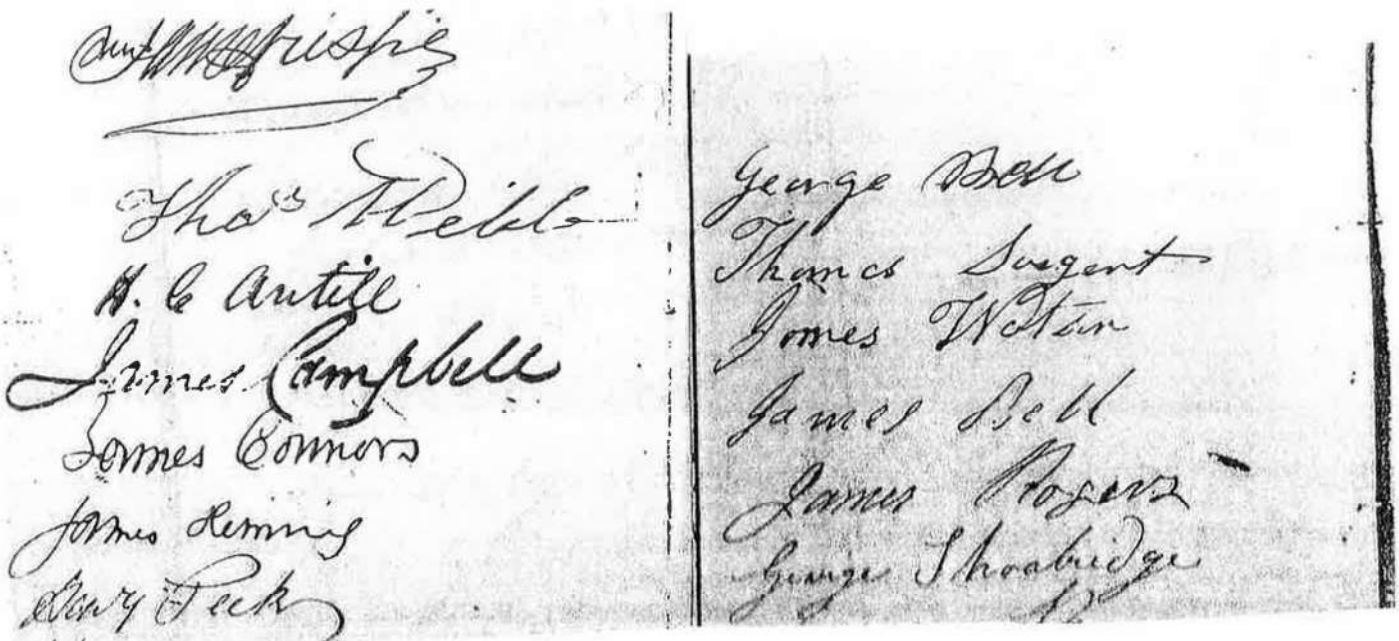 Thos Webb
H. C Antill
James Campbell
James Connors
James Heming
Peck
George Bell
Thomas Sargent
James Watson
James Bell
James Rogers
George Shoabridge